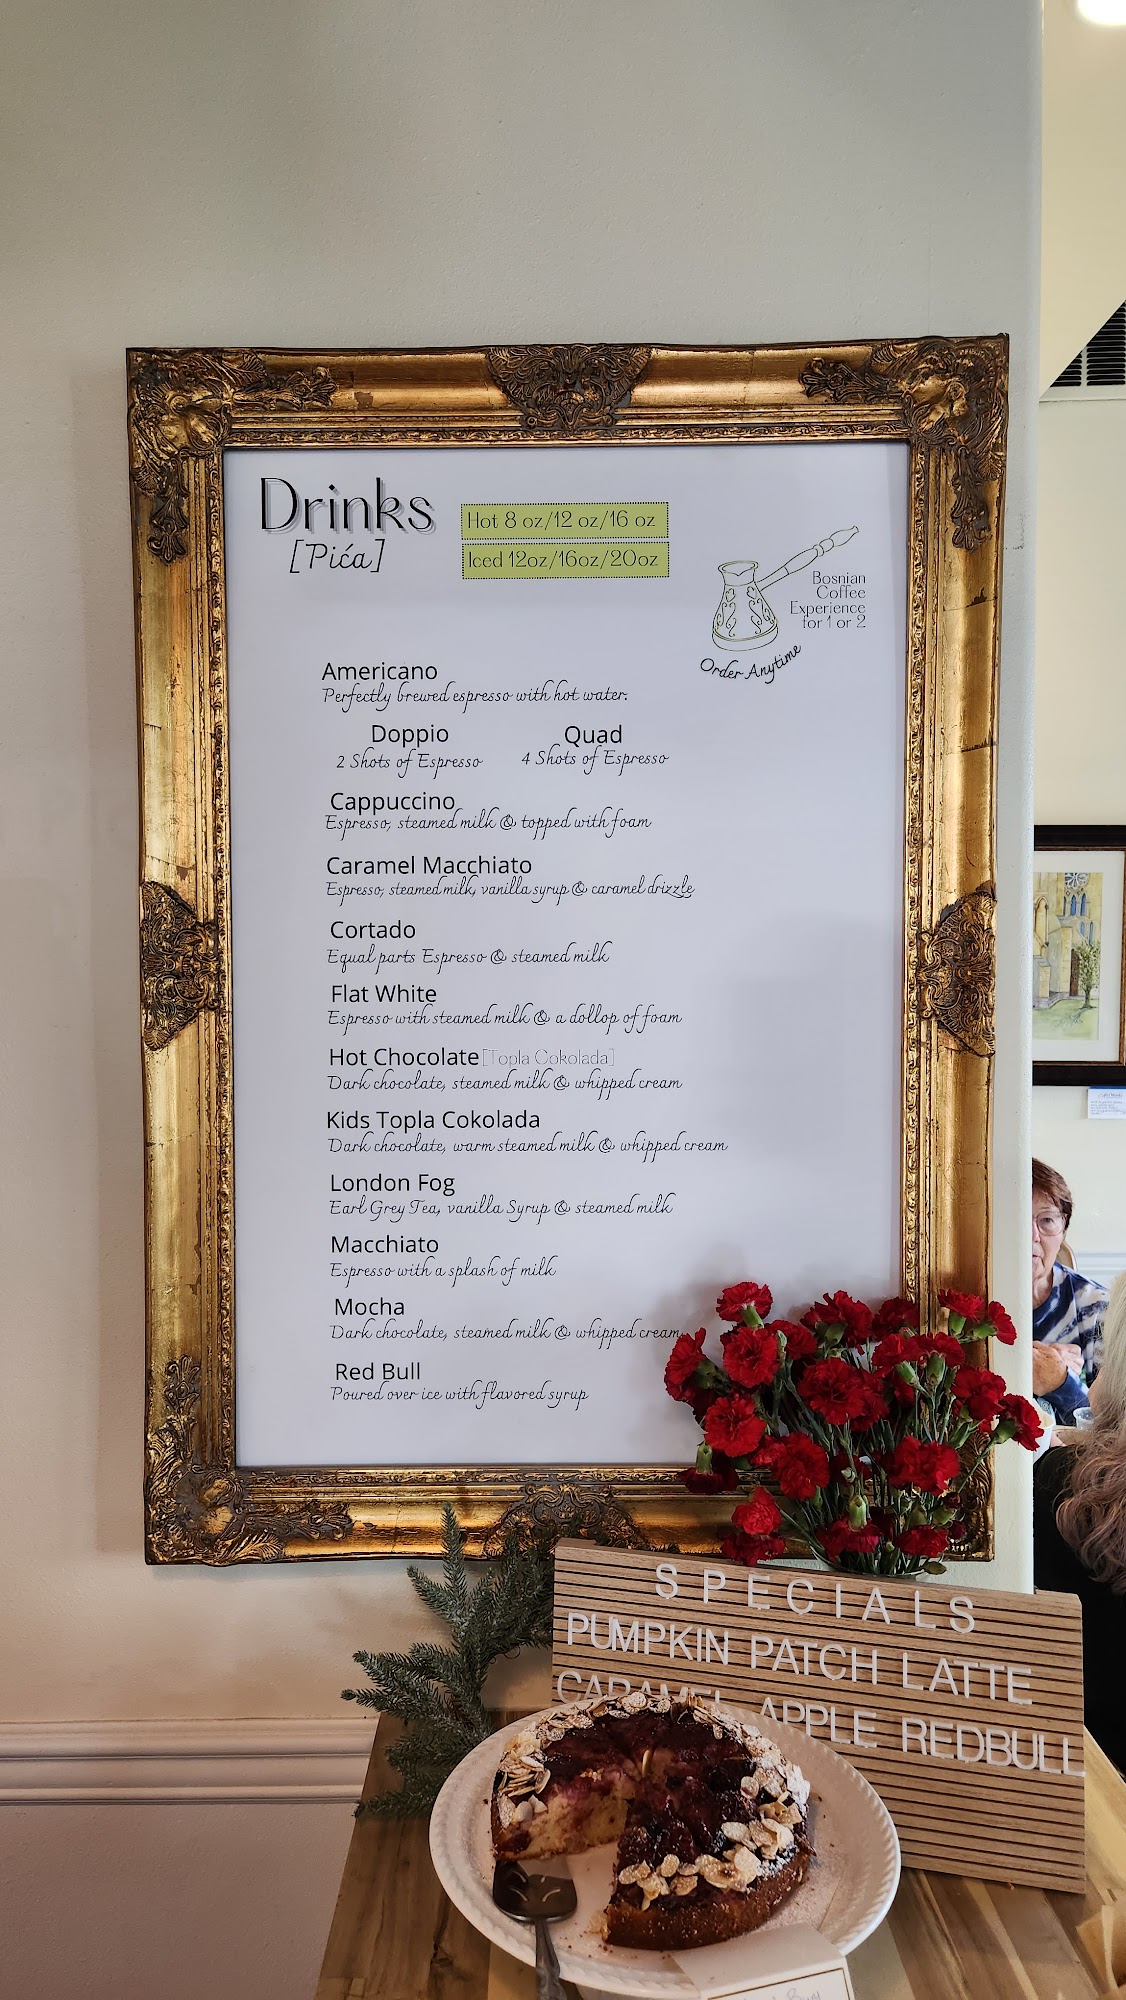 Drinks
[Pića]
Hot 8 oz/12 oz/16 oz
Iced 12oz/16oz/20oz
Bosnian
Coffee
Experience
for 1 or 2
Order Anytime
Americano
Perfectly brewed espresso with hot water.
Doppio
2 Shots of Espresso
Quad
4 Shots of Espresso
Cappuccino
Espresso, steamed milk & topped with foam
Caramel Macchiato
Espresso, steamed milk, vanilla syrup & caramel drizzle
Cortado
Equal parts Espresso & steamed milk
Flat White
Espresso with steamed milk & a dollop of foam
Hot Chocolate [Topla Cokolada]
Dark chocolate, steamed milk & whipped cream
Kids Topla Cokolada
Dark chocolate, warm steamed milk & whipped cream
London Fog
Earl Grey Tea, vanilla Syrup & steamed milk
Macchiato
Espresso with a splash of milk
Mocha
Dark chocolate, steamed milk & whipped cream
Red Bull
Poured over ice with flavored syrup
SPECIALS
PUMPKIN PATCH LATTE
CARAMEL APPLE REDBULL